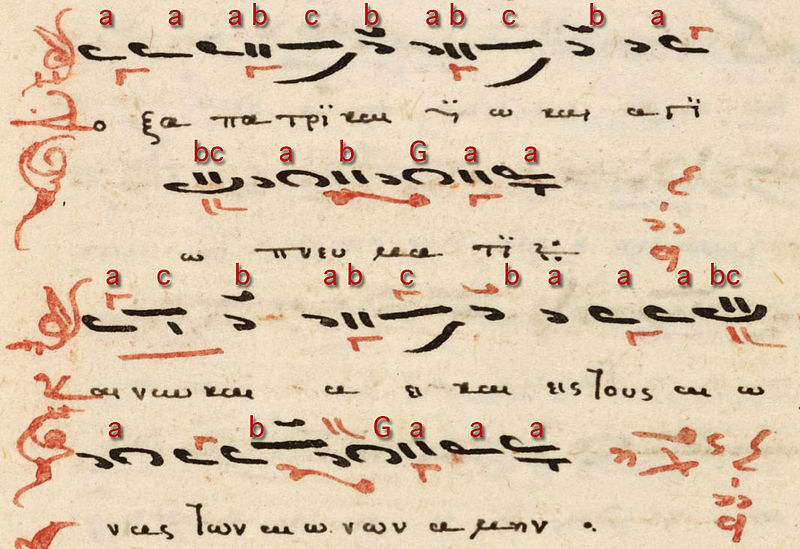 a a a b c b a b c b a
ο ξα πα τρϊ και ϋ ω και α γϊ
bc a b G a a
ω πνευ μα τϊ
a c b a b c b a a a bc
αι νυν και α ει και εις τους αι ω
a b G a a a
νας των αι ω νων α μην .